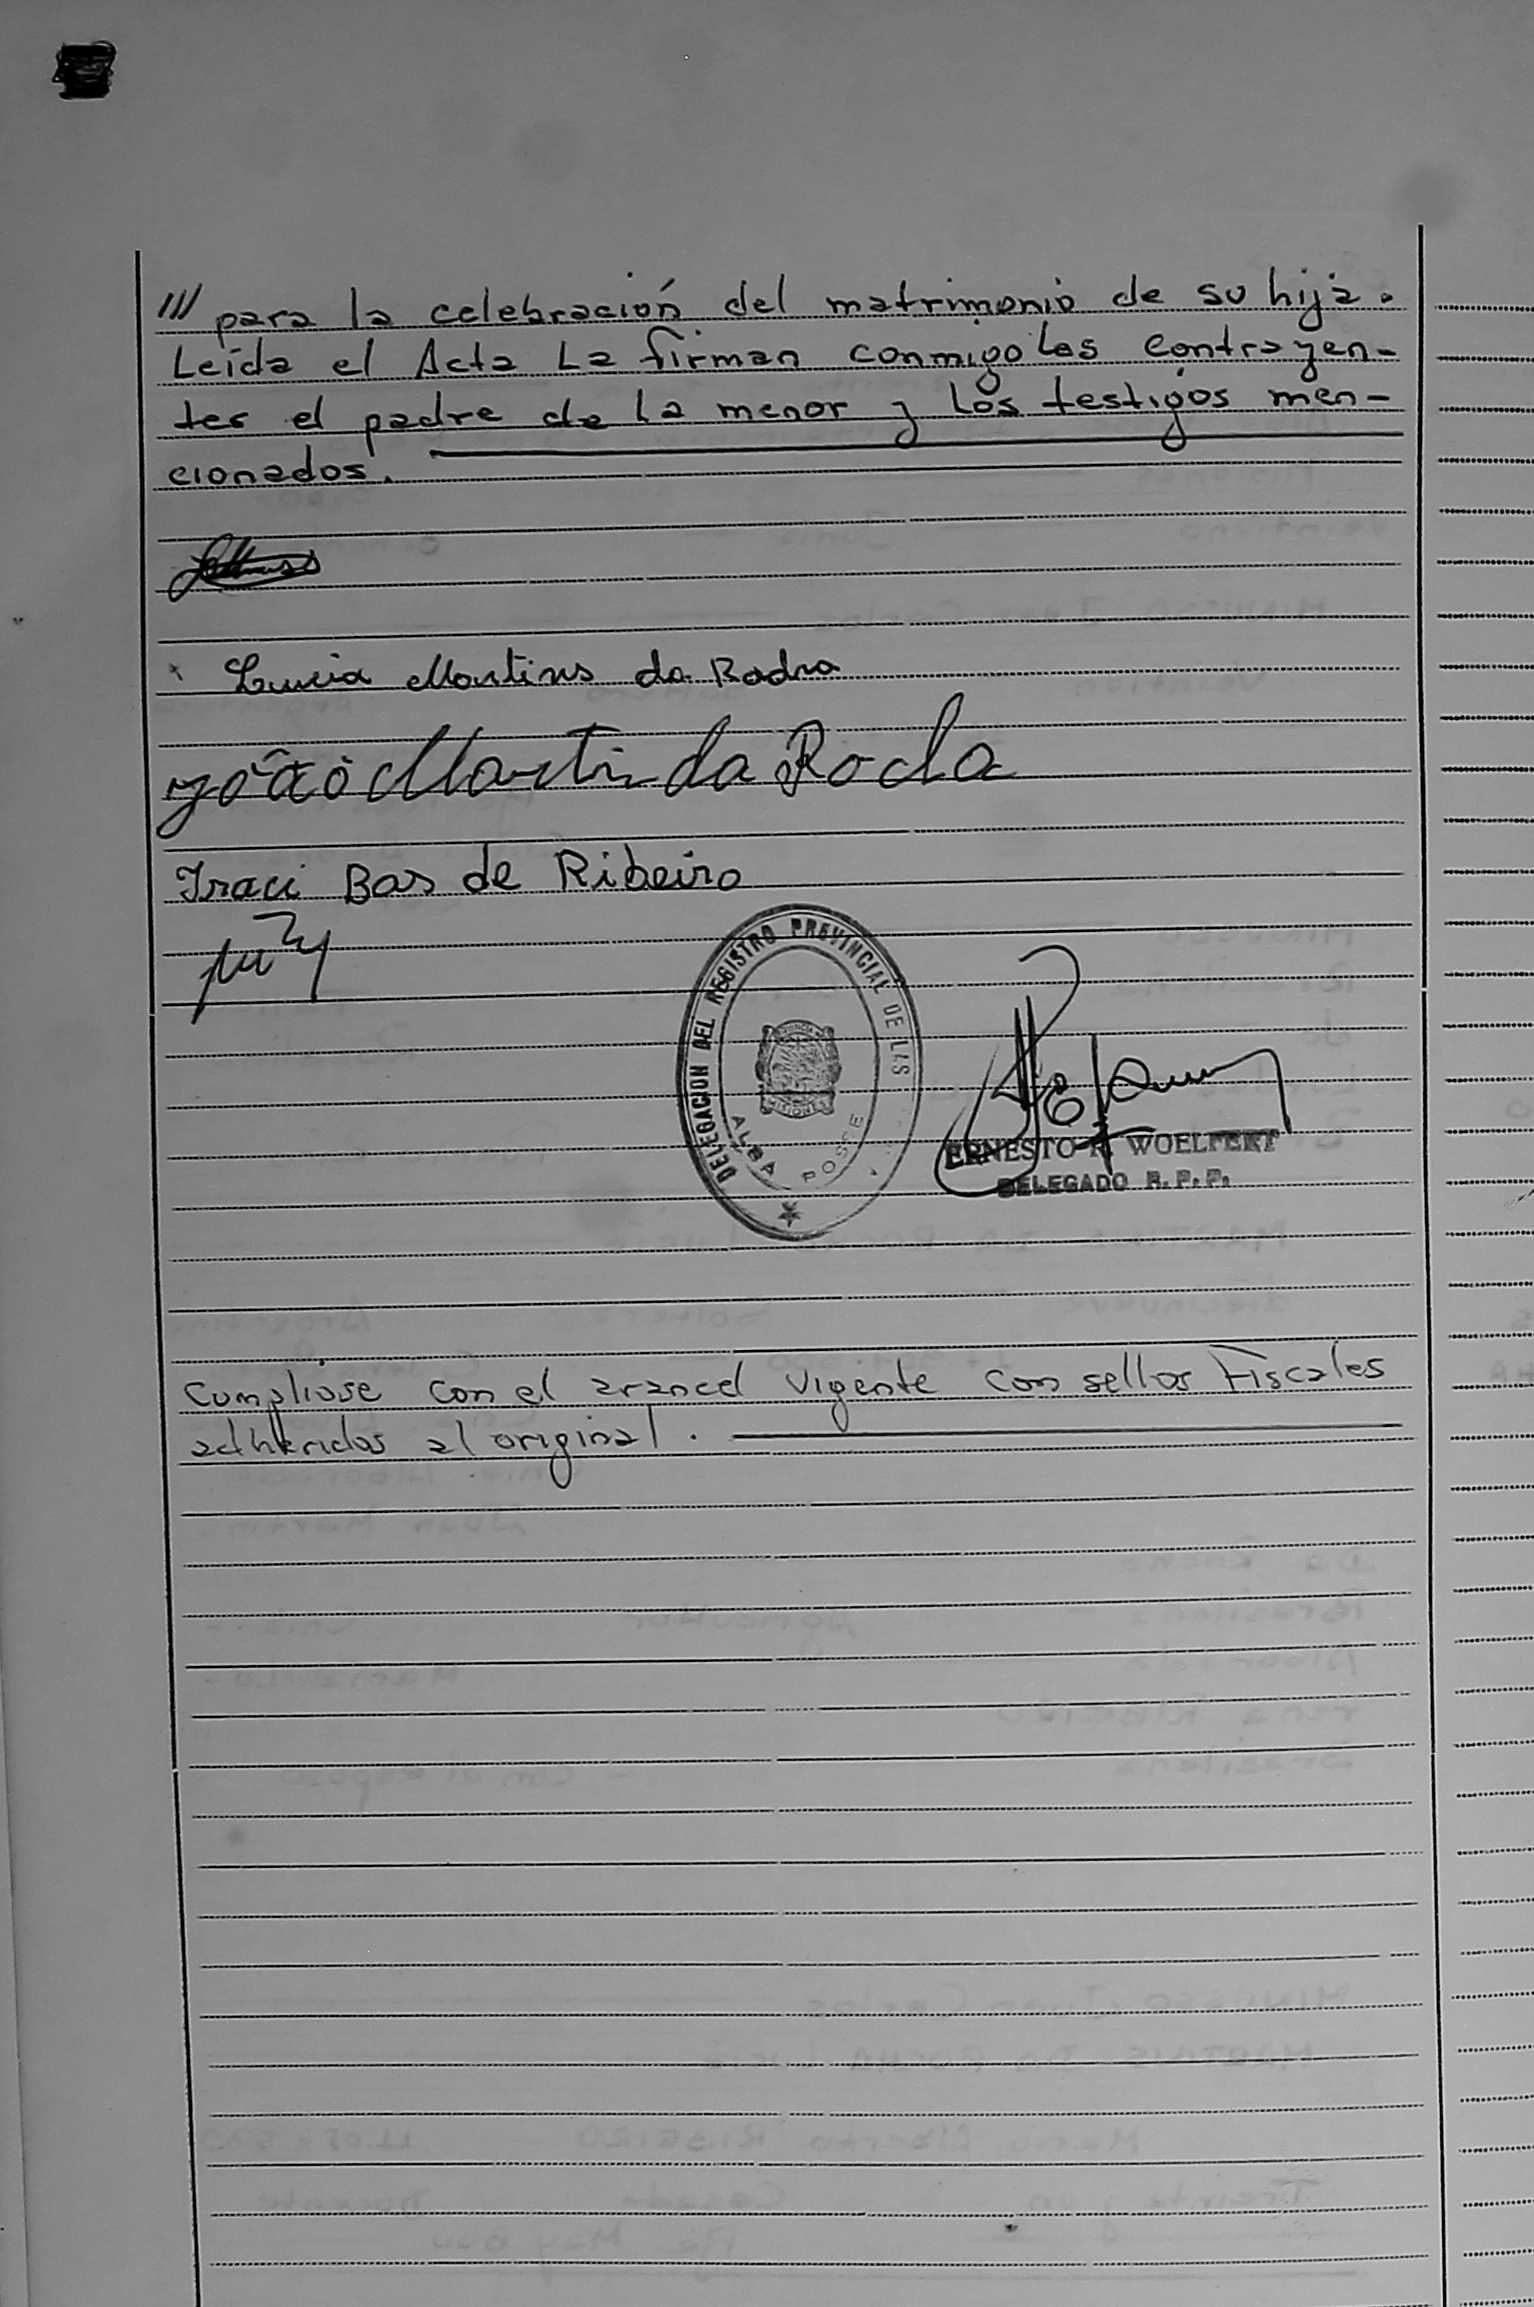 /// para la celebración del matrimonio de su hija.
Leída el Acta La firman conmigo los contrayen-
tes el padre de la menor y los testigos men-
cionados.
Lucia Martins da Rocha
João Martin da Rocha
Iraci Bas de Ribeiro
DELEGACION DEL REGISTRO PROVINCIAL DE LAS
ALBA POSSE
MISIONES
ERNESTO R. WOELFERT
DELEGADO R. P. P.
Cumpliose con el arancel vigente con sellos Fiscales
adheridos al original.